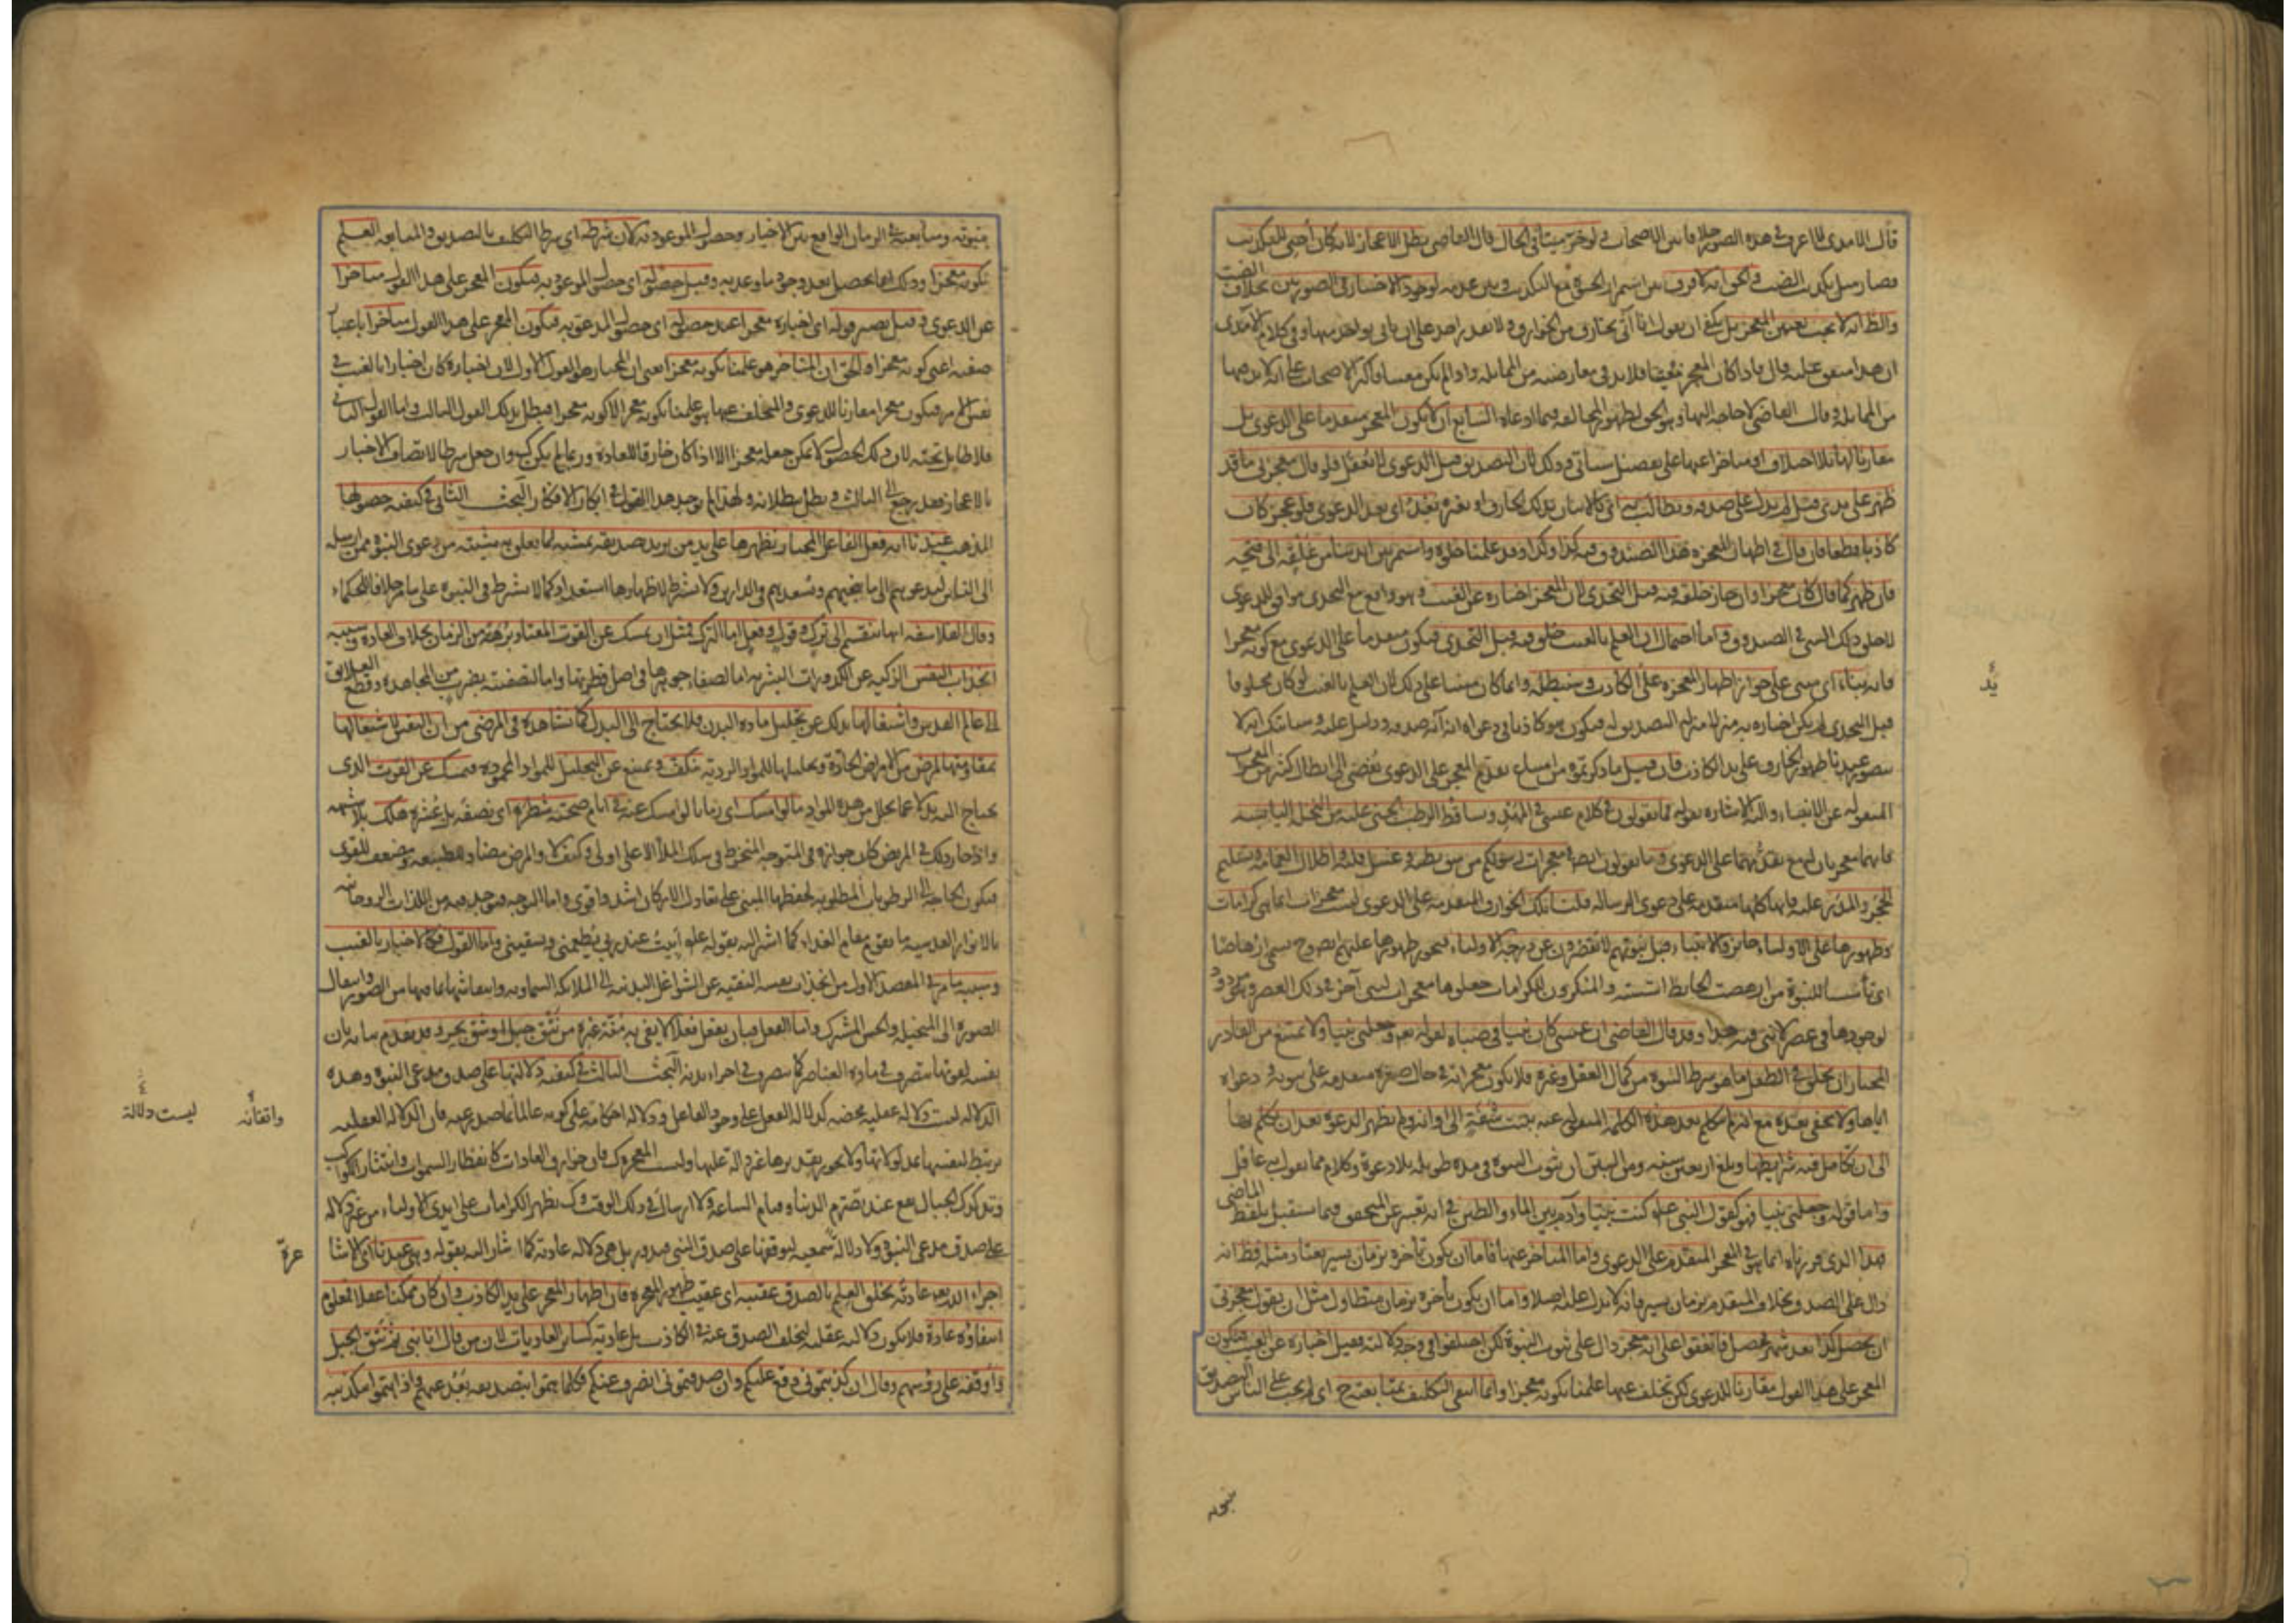 قال الآمدي لا اعرف في هذه الصورة خلافا بين الاصحاب ولو خر ميتا في الحال قال القاضي بطل الاعجاز لانه كان احيي للتكذيب
فصار مثل تكذيب الضب والحق انه لا فرق بين استمرار الحيوة مع التكذيب وبين عدمه لوجود الاختيار في الصورتين بخلاف الضب
والظ انه لا يجب تعيين المعجز بل يكفي ان يقول انا آتي بخارق من الخوارق ولا يقدر احد على ان ياتي بواحد منها وفي كلام الآمدي
ان هذا متفق عليه قال فاذا كان المعجز معينا فلا بد في معارضته من المماثلة واذا لم يكن معينا فاكثر الاصحاب على انه لا بد فيها
من المماثلة وقال القاضي لا حاجة اليها وهو الحق لظهور المخالفة فيما ادعاه السابع ان لا يكون المعجز متقدما على الدعوى بل
مقارنا لها بلا اختلاف او متاخرا عنها على تفصيل سيأتي وذلك لان التصديق قبل الدعوى لا يعقل فلو قال معجزتي ما قد
ظهر على يدي قبل لم يدل على صدقه ويطالب به اي بالاتيان بذلك الخارق او بغيره بعد اي بعد الدعوى فلو عجز كان
كاذبا قطعا فان قال في اظهار المعجزة هذا الصندوق فيه كذا وكذا وقد علمنا خلوه واستمر بين ايدينا من غلقه الى فتحه
فان ظهر كما قال كان معجزا وان جاز خلقه فيه قبل التحدي لان المعجز اخباره عن الغيب وهو واقع مع التحدي موافق للدعوى
لا خلق ذلك الشي في الصندوق واما احتمال ان العلم بالغيب خلق فيه قبل التحدي فيكون متقدما على الدعوى مع كونه معجزا
فانه بناء اي مبني على جواز اظهار المعجزة على يد الكاذب وسنبطله وانما كان مبنيا على ذلك لان العلم بالغيب لو كان مخلوقا
قبل التحدي لم يكن اخباره به منزلا منزلة التصديق له فيكون هو كاذبا في دعواه انه آية صدقه ودليل عليه وسيأتيك انه لا
يتصور عندنا ظهور الخارق على يد الكاذب فان قيل ما ذكرتموه من امتناع تقدم المعجز على الدعوى يفضي الى ابطال كثير من المعجزات
المنقولة عن الانبياء واليه الاشارة بقوله فما تقولون في كلام عيسى في المهد وتساقط الرطب الجني عليه من النخلة اليابسة
فانهما معجزتان له مع تقدمهما على الدعوى وما تقولون ايضا في معجزات رسولكم من شق بطنه وغسل قلبه واظلال الغمامة وتسليم
الحجر والمدر عليه فانها كلها متقدمة على دعوى الرسالة قلنا تلك الخوارق المتقدمة على الدعوى ليست معجزات انما هي كرامات
وظهورها على الاولياء جائز والانبياء قبل نبوتهم لا يقصرون عن درجة الاولياء فيجوز ظهورها عليهم ايضا وح يسمى ارهاصا
اي تأسيسا للنبوة من ارهصت الحايط اسسته والمنكرون للكرامات جعلوها معجزات لنبي آخر في ذلك العصر وهو مردود
لوجودها في عصر لا نبي فيه هذا وقد قال القاضي ان عيسى كان نبيا في صباه لقوله تعه وجعلني نبيا ولا يمتنع من القادر
المختار ان يخلق في الطفل ما هو شرط النبوة من كمال العقل وغيره فلا يكون معجزاته في حال صغره متقدمة على نبوته ودعواه
اياها ولا يخفى بعده مع انه لم يتكلم بعد هذه الكلمة المنقولة عنه ببنت شفة الى اوانه ولم يظهر الدعوة بعد ان تكلم بها
الى ان تكامل فيه شرايطها وبلغ اربعين سنة ومن البين ان ثبوت النبوة في مدة طويلة بلا دعوة وكلام مما لا يقول به عاقل
واما قوله وجعلني نبيا فهو كقول النبي عليه كنت نبيا وآدم بين الماء والطين في انه تعبير عن المتحقق فيما يستقبل بلفظ الماضي
هذا الذي قررناه انما هو في المعجز المتقدم على الدعوى واما المتاخر عنها فاما ان يكون تأخره بزمان يسير يعتاد مثله فظ انه
دال على الصدق بخلاف المتقدم بزمان يسير فانه لا يدل عليه اصلا واما ان يكون تأخره بزمان متطاول مثل ان يقول معجزتي
ان يحصل كذا بعد شهر فحصل فاتفقوا على انه معجز دال على ثبوت النبوة لكن اختلفوا في وجه دلالته فقيل اخباره عن الغيب فيكون
المعجز على هذا القول مقارنا للدعوى لكن تخلف عنها علمنا بكونه معجزا وانما انتفى التكليف بمتابعته ح اي لم يجب على الناس التصديق
يد
بنبوته
بنبوته ومتابعته في الزمان الواقع بين الاخبار وحصول الموعود به لان شرطه اي شرط التكليف بالتصديق والمتابعة العلم
بكونه معجزا وذلك انما يحصل بعد وجود ما وعد به وقيل حصوله اي حصول الموعود به فيكون المعجز على هذا القول متاخرا
عن الدعوى وقيل يصير قوله اي اخباره معجزا عند حصوله اي حصول الموعود به فيكون المعجز على هذا القول متاخرا باعتبار
صفته اعني كونه معجزا والحق ان المتاخر هو علمنا بكونه معجزا يعني ان المختار هو القول الاول لان اخباره كان اخبارا بالغيب في
نفس الامر فيكون معجزا مقارنا للدعوى والتخلف عنها هو علمنا بكونه معجزا لا كونه معجزا فبطل بذلك القول الثالث واما القول الثاني
فلا طايل تحته لان ذلك الحصول لا يمكن جعله معجزا الا اذا كان خارقا للعادة وربما لم يكن كك وان جعل شرطا لاتصاف الاخبار
بالاعجاز فقد رجع الى الثالث وبطل ببطلانه ولهذا لم يوجد هذا القول في ابكار الافكار البحث الثاني في كيفية حصولها
المذهب عندنا انه فعل الفاعل المختار يظهرها على يد من يريد تصديقه بمشيته لما تعلق به مشيته من دعوى النبوة ممن ارسله
الى الناس ليدعوهم الى ما ينجيهم ويسعدهم في الدارين ولا نشترط لاظهارها استعدادا كما لا نشترط في النبوة على ما مر خلافا للحكماء
وقال الفلاسفة انها تنقسم الى ترك وقول وفعل اما الترك فمثل ان يمسك عن القوت المعتاد برهة من الزمان بخلاف العادة وسببه
انجذاب النفس الزكية عن الكدورات البشرية اما لصفاء جوهرها في اصل فطرتها واما لتصفيته بضرب من المجاهدة وقطع العلايق
الى عالم القدس واشتغالها بذلك عن تحليل مادة البدن فلا يحتاج الى البدل كما نشاهده في المرضى من ان النفس لاشتغالها
بمقاومتها المرض من الامراض الحادة وتحليلها للمواد الردية تنكف وتمتنع عن التحليل للمواد المحمودة فيمسك عن القوت الذي
يحتاج اليه بدلا عما تحلل من هذه المواد ما لو امسك اي زمانا لو امسك عنه في ايام صحته شطره اي نصفه بل عشره هلك بلا شبهة
واذا جاز ذلك في المريض كان جوازه في المتوجه المنخرط في سلك الملأ الاعلى اولى وكيف لا والمرض مضاد للطبيعة ومضعف للقوى
فيكون الحاجة الى الرطوبات المطلوبة لحفظها المبني على تعادل الاركان اشد واقوى واما المتوجه فيوجد فيه من اللذات الروحانية
بالانوار القدسية ما يقوم مقام الغذاء كما اشير اليه بقوله علم ابيت عند ربي يطعمني ويسقيني واما القول فكالاخبار بالغيب
وسببه ما مر في المقصد الاول من انجذاب نفسه النقية عن الشواغل البدنية الى الملائكة السماوية وانتقاشها بما فيها من الصور وانتقال
الصورة الى المتخيلة والحس المشترك واما الفعل فبان يفعل فعلا لا يفي به منة غيره من نتق جبل او شق بحر وقد تقدم بيانه بان
نفسه لقوتها تتصرف في مادة العناصر كما تتصرف في اجزاء بدنه البحث الثالث في كيفية دلالتها على صدق مدعي النبوة وهذه
الدلالة ليست دلالة عقلية محضة كدلالة الفعل على وجود الفاعل ودلالة احكامه على كونه عالما بما صدر عنه فان الدلالة العقلية
يرتبط لنفسها بمدلولاتها ولا يجوز تقديرها غير دالة عليها وليست المعجزة كك فان خوارق العادات كانفطار السموات وانتثار الكواكب
وتدكدك الجبال يقع عند تصرم الدنيا وقيام الساعة ولا ارسال في ذلك الوقت وكك يظهر الكرامات على ايدي الاولياء من غير دلالة
على صدق مدعي النبوة ولا دلالة سمعية لتوقفها على صدق النبي فيدور بل هي دلالة عادية كما اشار اليه بقوله وهي عندنا اي الاشاعرة
اجراء الله تعه عادته بخلق العلم بالصدق عقيبه اي عقيب ظهور المعجزة فان اظهار المعجز على يد الكاذب وان كان ممكنا عقلا فمعلوم
انتفاؤه عادة فلا يكون دلالته عقلية لتخلف الصدق عنه في الكاذب بل عادية كساير العاديات لان من قال انا نبي ثم نتق الجبل
واوقفه على رؤسهم وقال ان كذبتموني وقع عليكم وان صدقتموني انصرف عنكم فكلما هموا بتصديقه بعد عنهم واذا هموا بتكذيبه
واتقانه
ليست دلالة
عرة